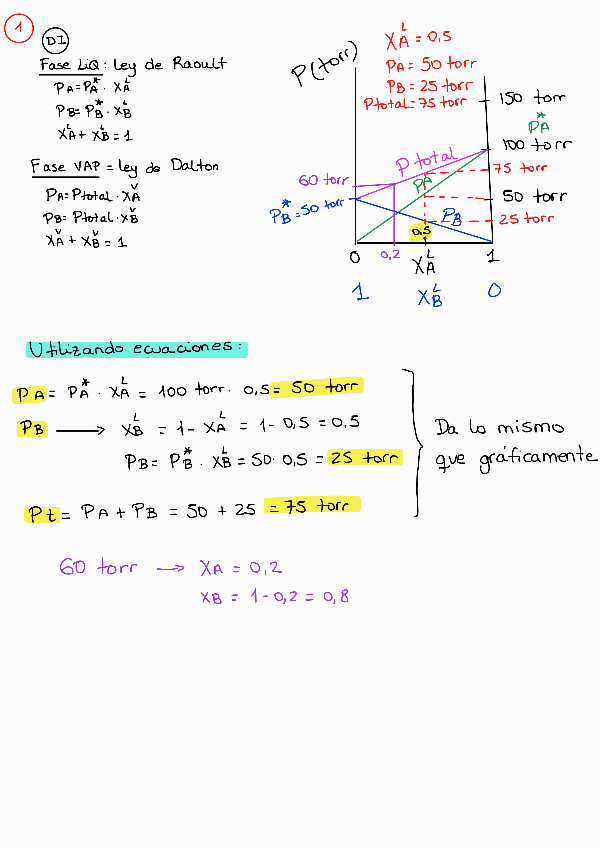 1
DI
Fase LiQ: Ley de Raoult
PA=PA* · XA^L
PB=PB* · XB^L
XA^L + XB^L = 1
Fase VAP = ley de Dalton
PA=Ptotal·XA^V
PB=Ptotal·XB^V
XA^V + XB^V = 1
P(torr)
XA^L = 0,5
PA = 50 torr
PB = 25 torr
Ptotal=75 torr
150 torr
PA*
100 torr
P total
75 torr
60 torr
PA
PB*=50 torr
50 torr
PB
25 torr
0,5
0
0,2
XA^L
1
1
XB^L
0
Utilizando ecuaciones:
PA= PA* · XA^L = 100 torr · 0,5= 50 torr
PB → XB^L = 1- XA^L = 1- 0,5 = 0,5
PB= PB* · XB^L = 50· 0,5 = 25 torr
Pt = PA + PB = 50 + 25 = 75 torr
Da lo mismo
que gráficamente
60 torr → XA = 0,2
XB = 1-0,2 = 0,8